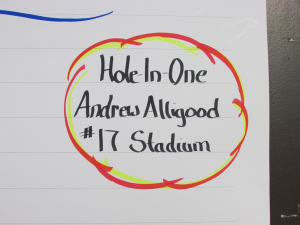 Hole-In-One
Andrew Alligood
#17 Stadium